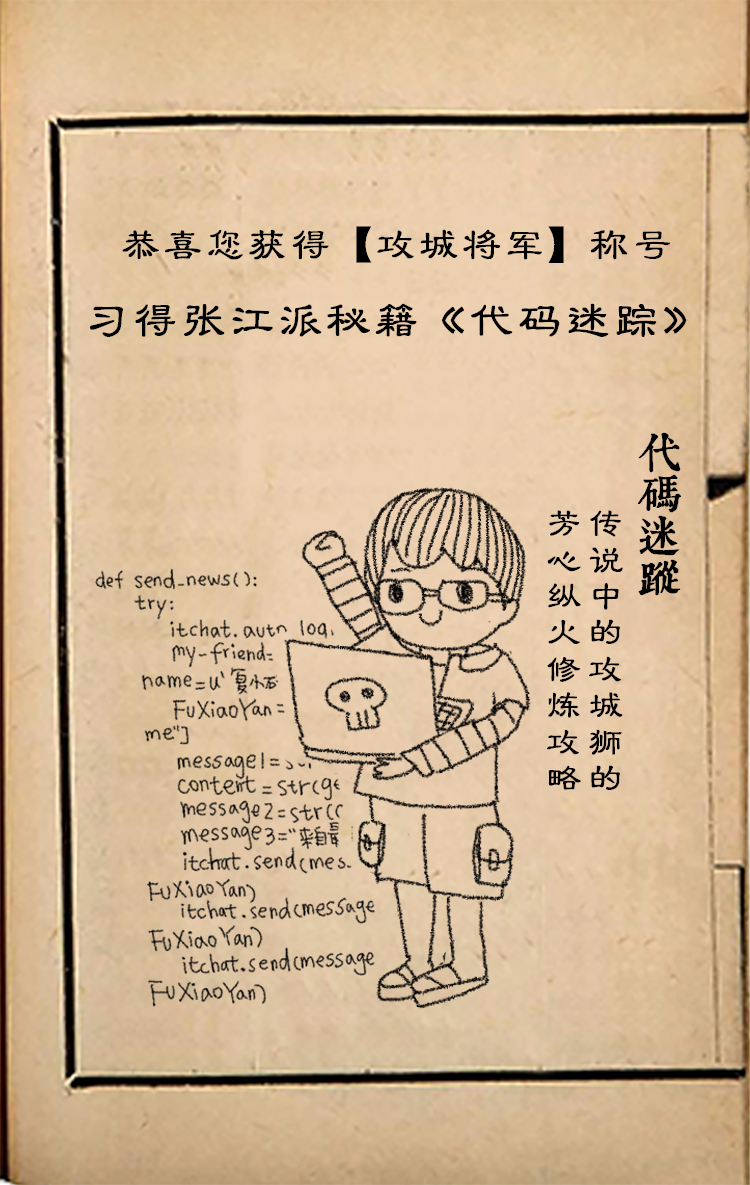 恭喜您获得【攻城将军】称号
习得张江派秘籍《代码迷踪》
代碼迷蹤
传说中的攻城狮的
芳心纵火修炼攻略
def send_news():
try:
itchat.auto_logi
my-friend=
name=u'复小
FuXiaoYan=
me"]
message1=
content=str(ge
message2=str(
message3="来自
itchat.send(mes.
FuXiaoYan)
itchat.send(message
FuXiaoYan)
itchat.send(message
FuXiaoYan)